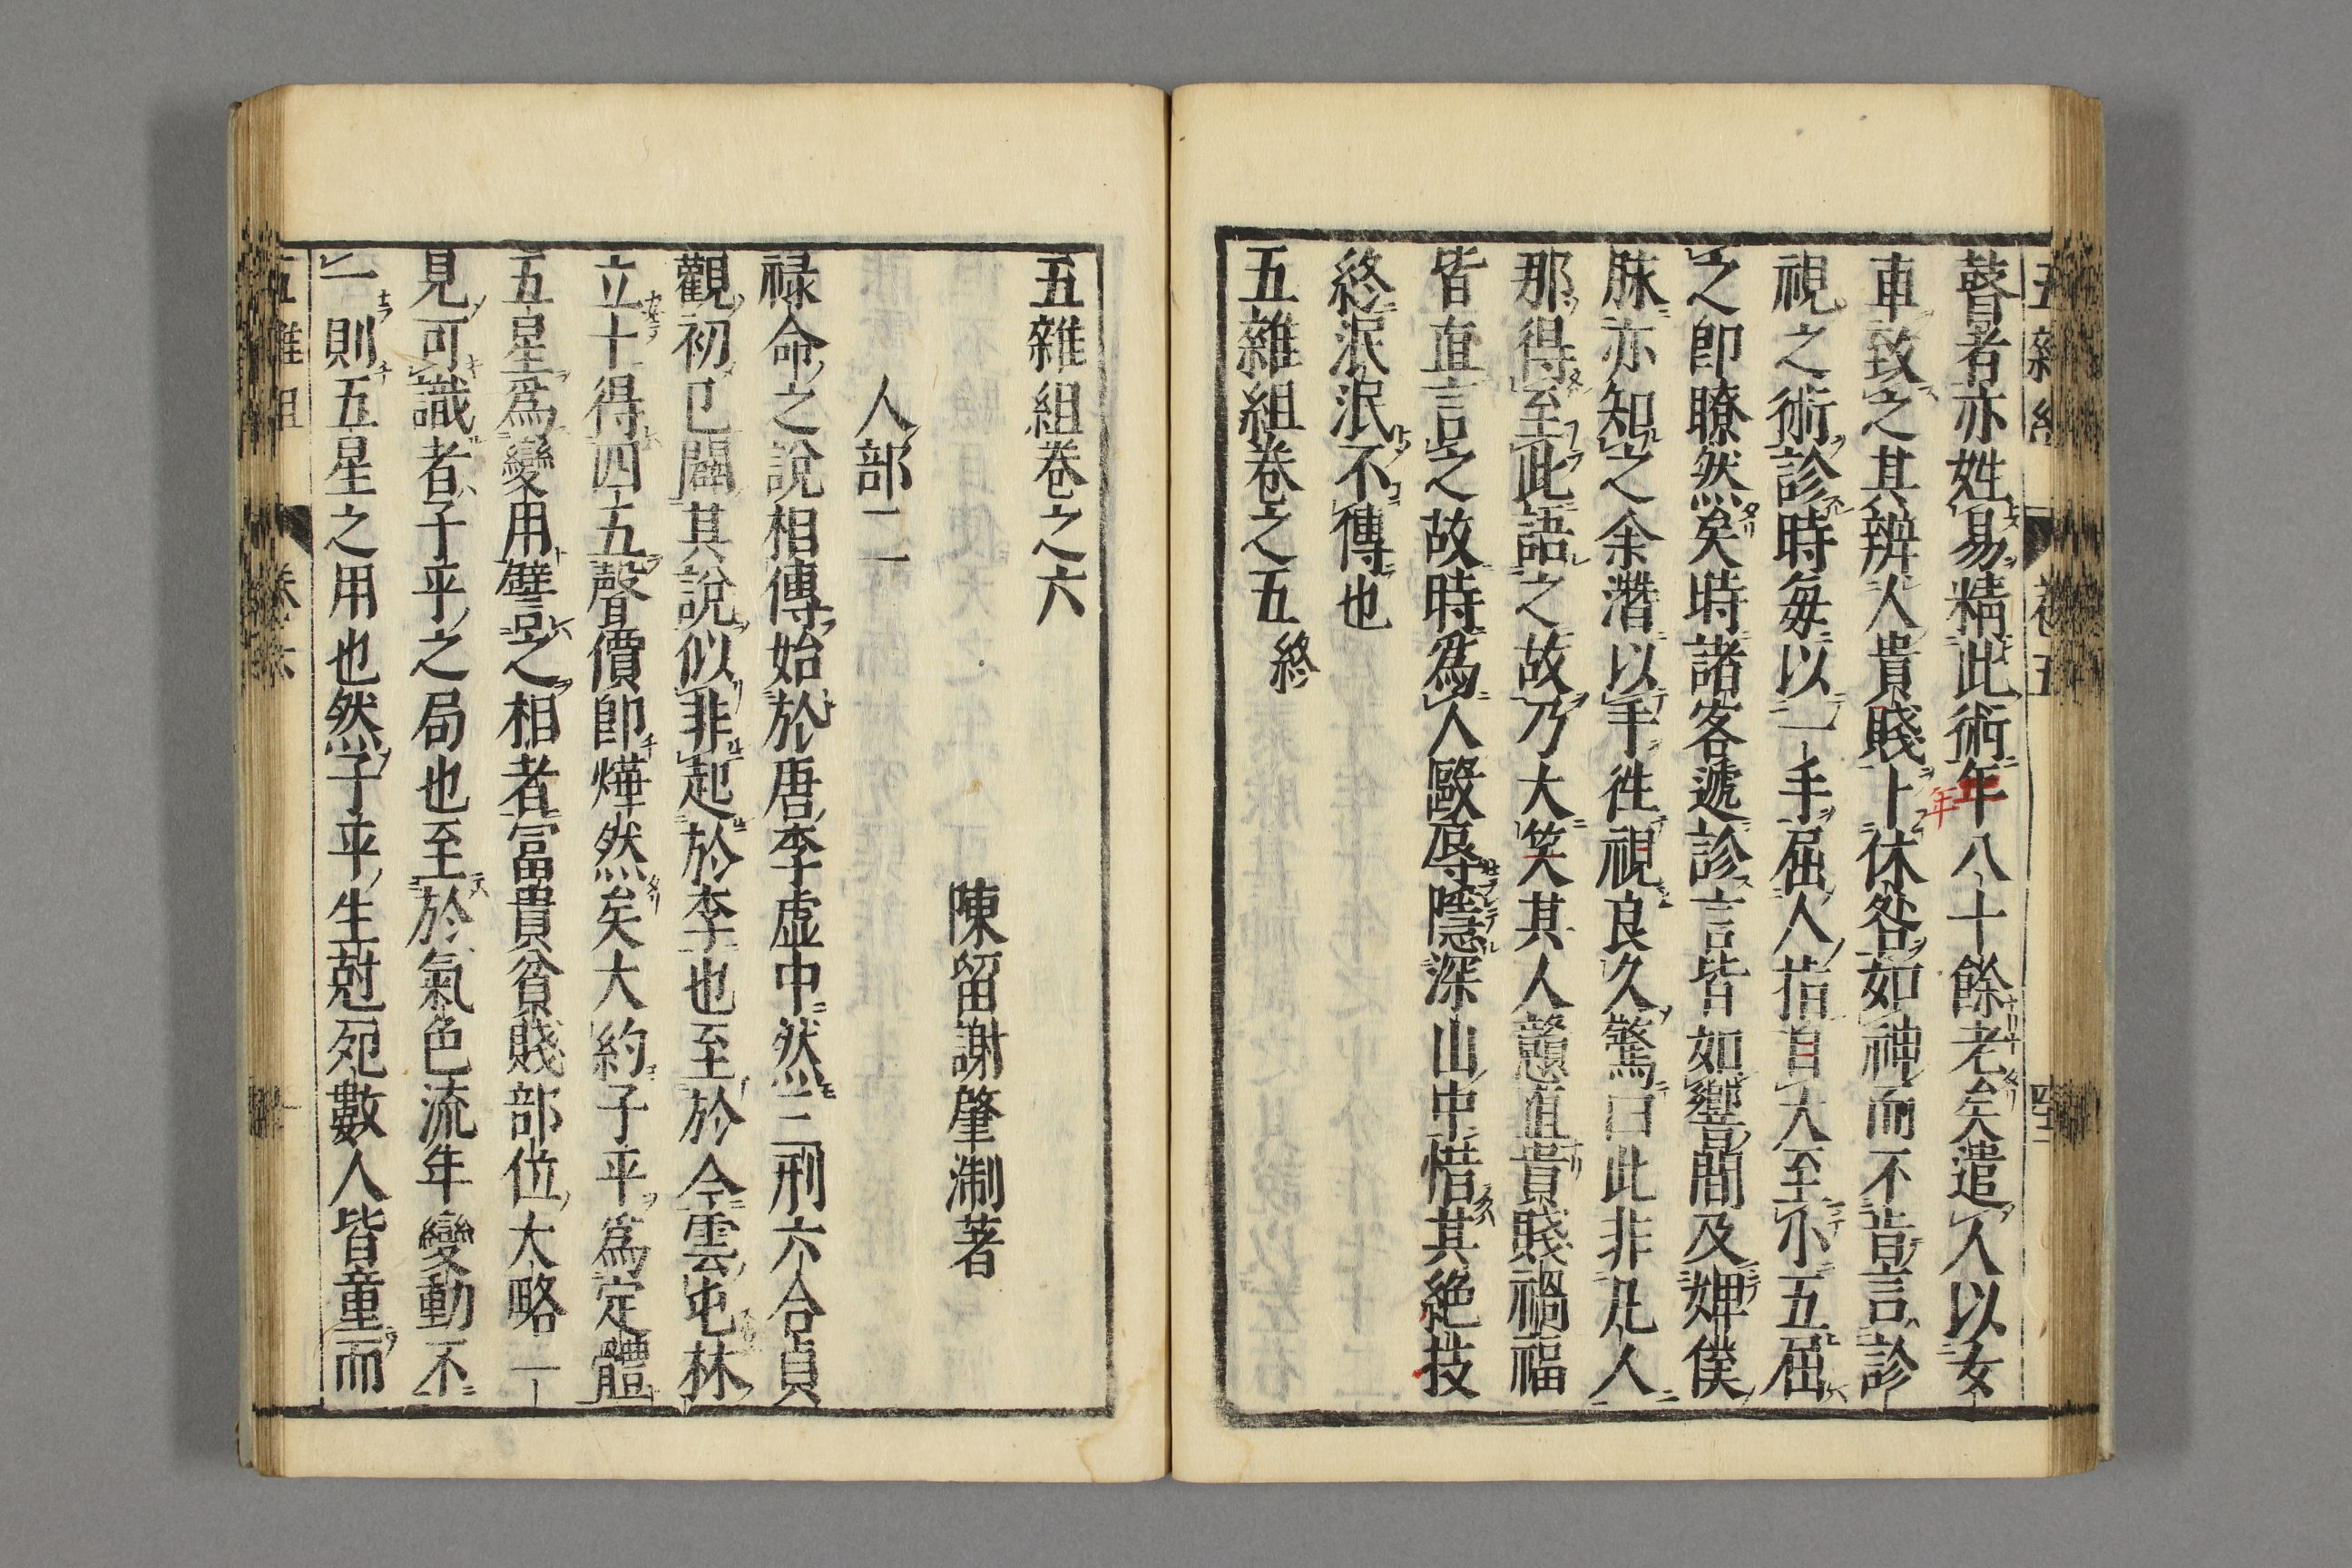 瞽者亦姓易精此術年八十餘老矣遣人以女
年
車致之其辨人貴賤卜休咎如神而不肯言診
視之術診時每以一手屈人指自大至小五屈
之即瞭然矣時諸客遞診言皆如響間及婢僕
脉亦知之余潛以手徃視良久驚曰此非凡人
那得至此語之故乃大笑其人戇直貴賤禍福
皆直言之故時爲人毆辱隱深山中惜其絶技
終泯泯不傳也
五雜組卷之五 終
五雜組卷之六
陳留謝肇淛著
人部二
禄命之說相傳始於唐李虚中然三刑六合貞
觀初已闢其說似非起於李也至於今雲屯林
立十得四五聲價即燁然矣大約子平爲定體
五星爲變用譬之相者富貴貧賤部位大略一
見可識者子平之局也至於氣色流年變動不
一則五星之用也然子平生尅死數人皆童而
五雜組 卷六